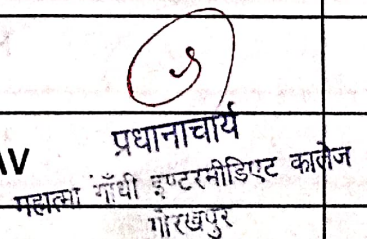 प्रधानाचार्य
AV
महात्मा गाँधी इण्टरमीडिएट कालेज
गोरखपुर